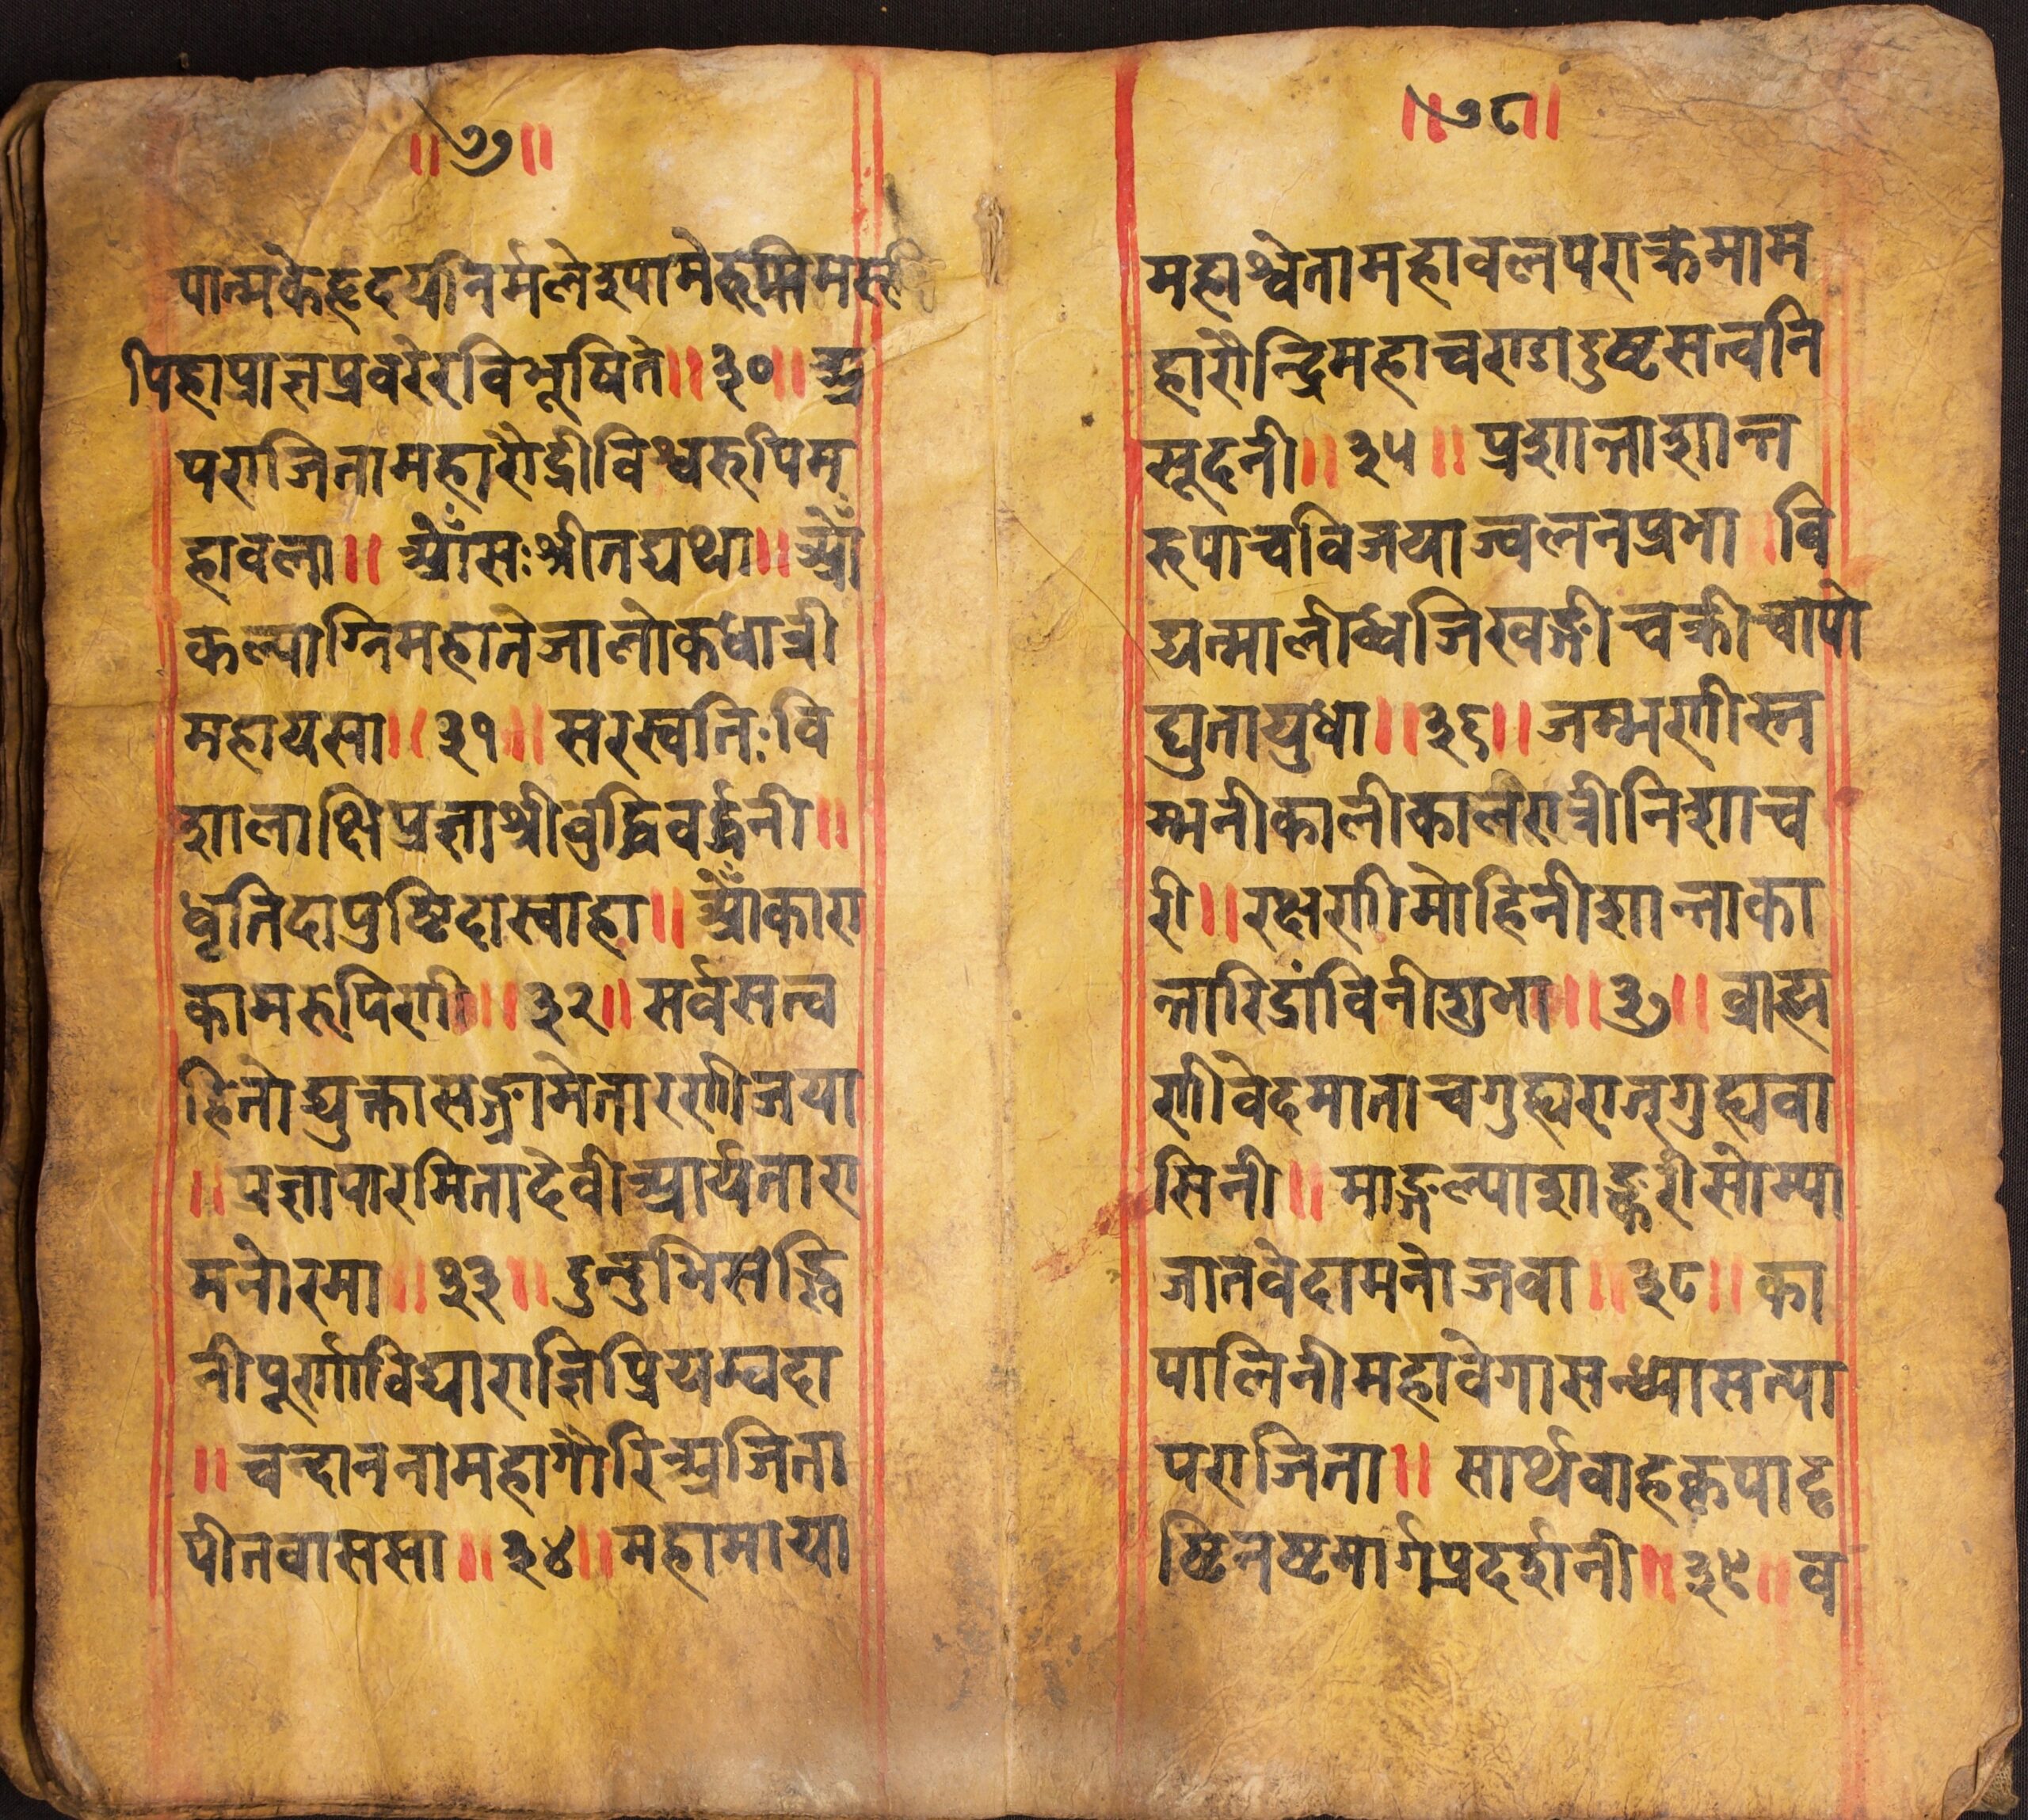 ॥७॥
पात्मकेहृदयनिर्मलेरुपामे
पिह्नाप्राज्ञप्रवरेरविभूषिते॥३०॥अ
पराजितामहारौद्रीविश्वरुपिम
हावला॥ ओँसःश्रीतद्यथा॥ओँ
कल्पाग्निमहातेजालोकधात्री
महायसा॥३१॥सरस्वतिःवि
शालाक्षिप्रज्ञाश्रीवुद्धिवर्द्धनी॥
धृतिदापुष्टिदास्वाहा॥ओँकारा
कामरुपिणी॥३२॥सर्वसत्व
हितोद्युक्तासङ्ग्रामेतारणीजया
॥प्रज्ञापारमितादेवीआर्यतारा
मनोरमा॥३३॥दुन्दुभिसंङ्खि
नीपूर्णाविद्याराज्ञिप्रियम्वदा
॥चन्दाननामहागौरिअजिता
पीतवाससा॥३४॥महामाया
॥७८॥
महाश्वेतामहावलपराक्रमाम
हारौन्द्रिमहाचण्डादुष्टसत्वनि
सूदनी॥३५॥प्रशान्ताशान्त
रुपाचविजयाज्वलनप्रभा॥वि
द्यन्मालीध्वजिखङ्गीचक्रीचापो
द्युतायुधा॥३६॥जम्भणीस्त
म्भनीकालीकालरात्रीनिशाच
री॥रक्षणीमोहिनीशान्ताका
न्तारिद्रांविनीशुभा॥३७॥व्राह्म
णीवेदमाताचगुह्यरात्नगुह्यवा
सिनी॥माङ्गल्पाशाङ्करीसोम्या
जातवेदामनोजवा॥३८॥का
पालिनीमहावेगासन्ध्यासत्या
पराजिता॥सार्थवाहकृपादृ
ष्टिनष्टमार्गप्रदर्शनी॥३९॥व